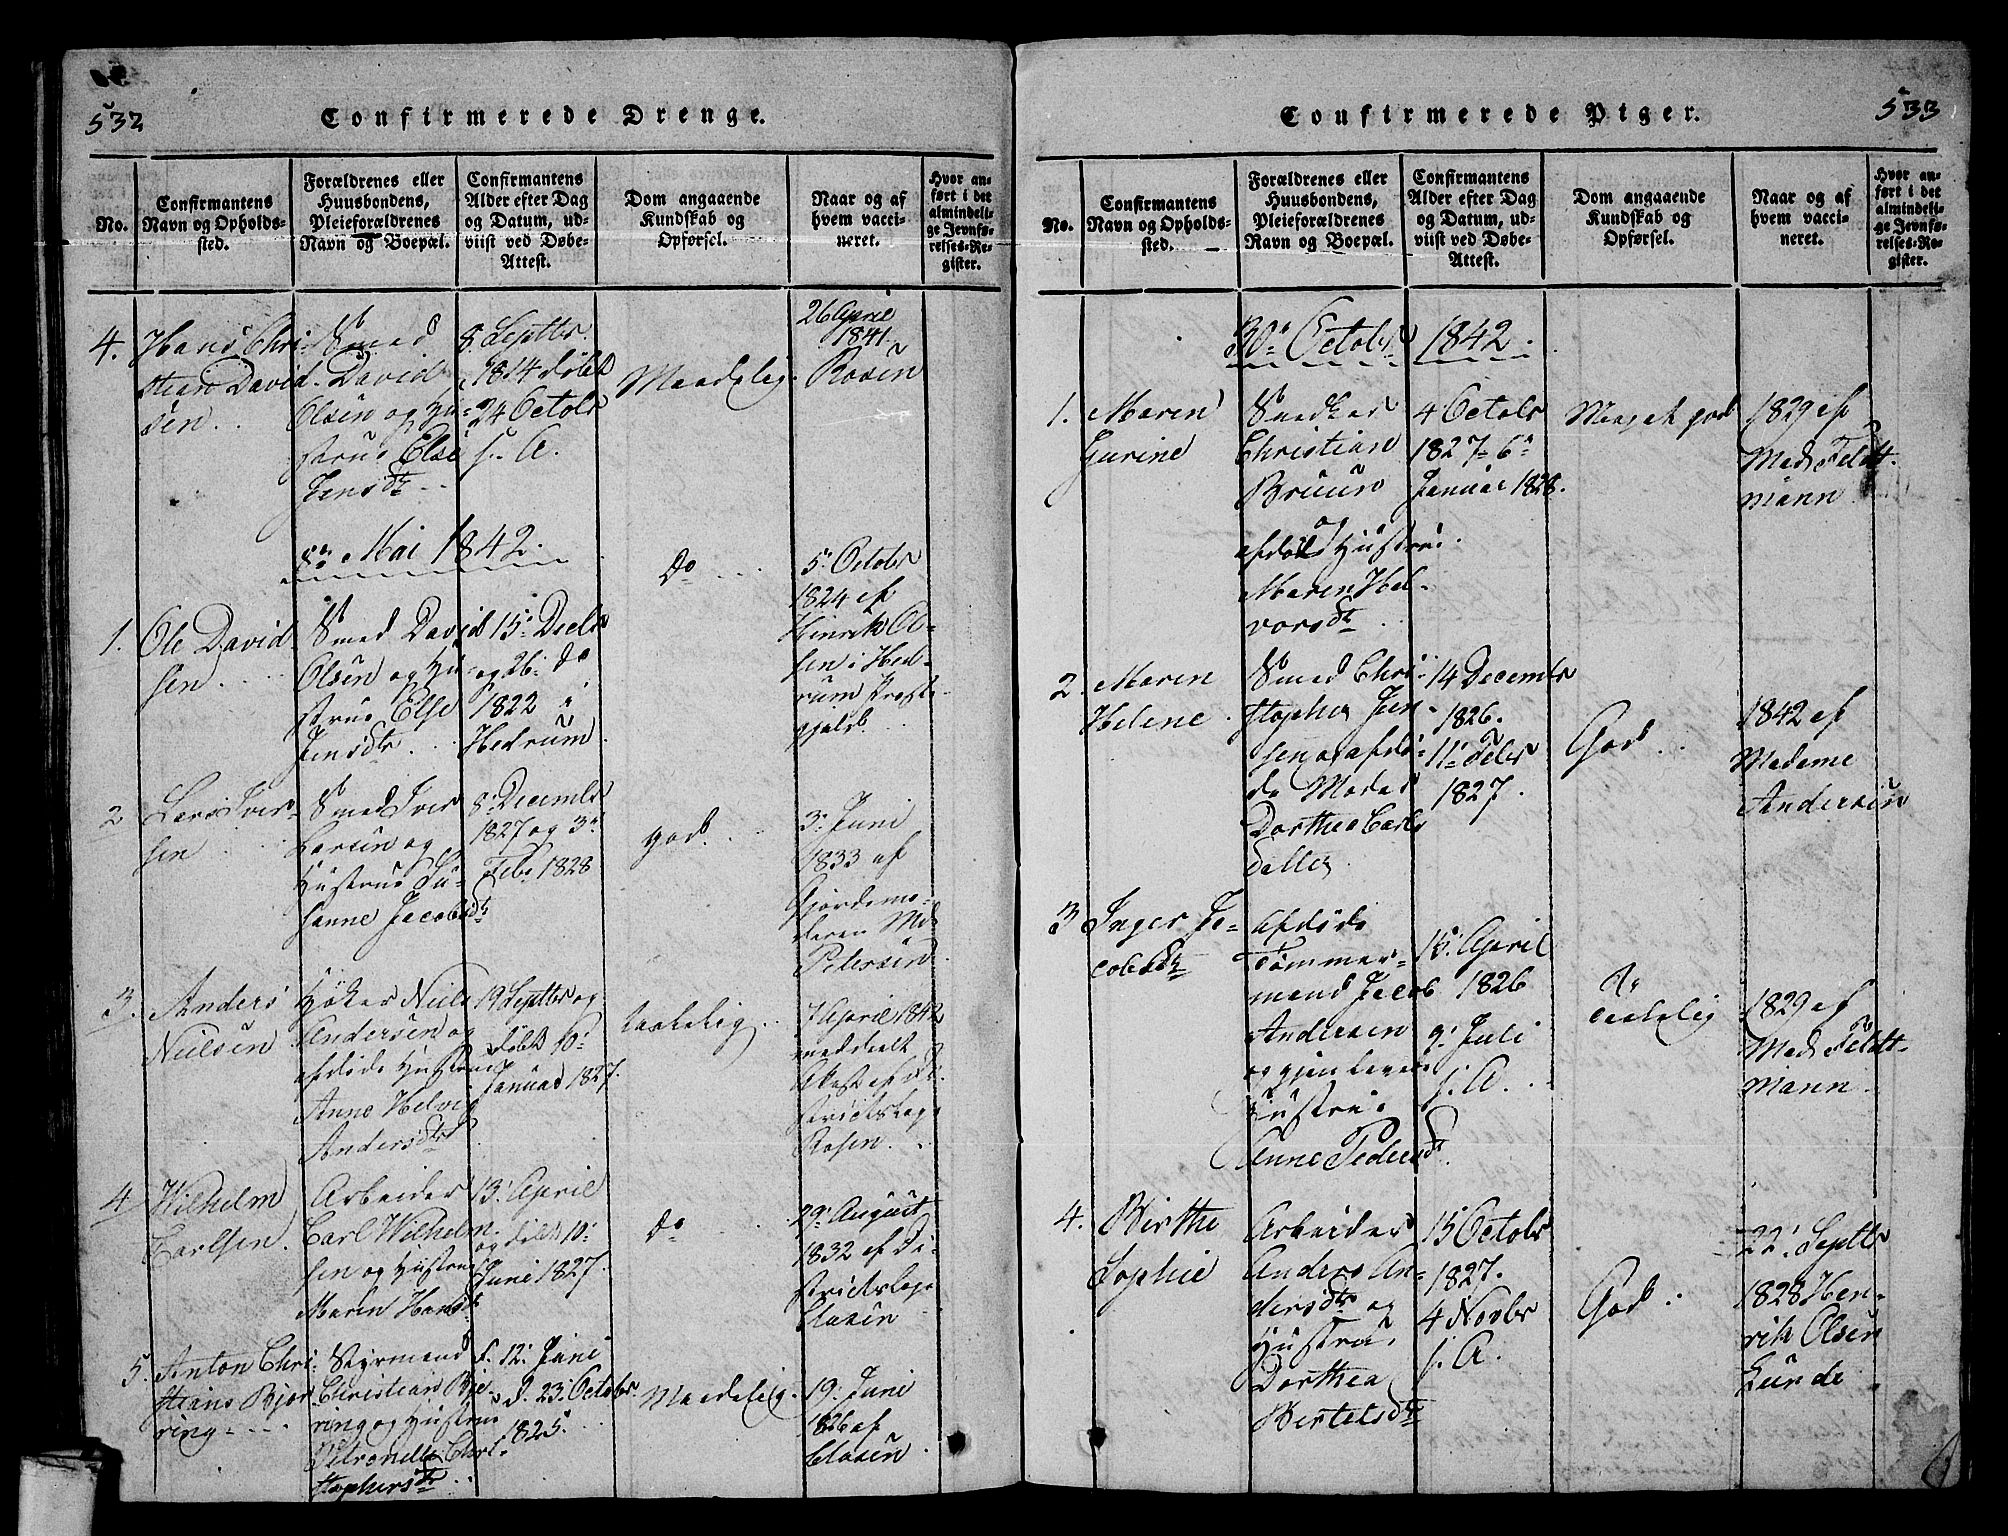 532
Confirmerede Drenge.
No.
Confirmantens
Navn og Opholds-
sted.
Forældrenes eller
Huusbondens,
Pleieforældrenes
Navn og Boepæl.
Confirmantens
Alder efter Dag
og Datum, ud-
viist ved Døbe-
Attest.
Dom angaaende
Kundskab og
Opførsel.
Naar og af
hvem vacci-
neret.
Hvor an-
ført i det
almindeli-
ge Jevnfø-
relses-Re-
gister.
4.
Hans Chri-
stian David-
sen.
Smed
David
Olsen og Hu-
strue Else
Jensdtr
8. Septbr.
1814 døbt
24 Octobr
s. A.
Maadelig.
26 April
1841.
Rosen
8de Mai 1842.
1.
Ole David-
sen.
Smed David
Olsen og Hu-
strue Else
Jensdtr.
15. Decbr
og 26. do
1822 i
Hedrum
Do
5. Octobr
1824 af
Hinrik Ol-
sen i Hed-
rum Præste-
gjeld.
2
Lars Iver-
sen
Smed Iver
Larsen og
Hustrue Su-
sanne Jacobsdtr
8. Decembr
1827 og 3.
Feb. 1828
god.
3. Juni
1833 af
Gjordemo-
deren Md.
Petersen.
3.
Anders
Nielsen
Høker Niels
Andersen og
afdøde Hustrue
Anne Helvig
Andersdtr
19 Septbr og
døbt 10.
Januar 1827.
taalelig.
7 April 1842
meddeelt
Attest af Di-
strictslæge
Rosen.
4
Wilhelm
Carlsen.
Arbeider
Carl Wilhelm-
sen og Hustrue
Maren Hansdtr
13. April
og døbt 10.
Juni 1827.
Do
29. August
1832 af Di-
strictslæge
Clasen
5.
Anton Chri-
stians Bjer-
ring.
Styrmand
Christian Bje-
ring og Hustrue
Petronelle Chri-
stophersdtr.
f. 12. Juni
d. 23. Octobr.
1825.
Maadelig.
19. Juni
1826 af
Clasen.
533
Confirmerede Piger.
No.
Confirmantens
Navn og Opholds-
sted.
Forældrenes eller
Huusbondens,
Pleieforældrenes
Navn og Boepæl.
Confirmantens
Alder efter Dag
og Datum, ud-
viist ved Døbe-
Attest.
Dom angaaende
Kundskab og
Opførsel.
Naar og af
hvem vacci-
neret.
Hvor an-
ført i det
almindeli-
ge Jevnfø-
relses-Re-
gister.
30. Octobr 1842.
1.
Maren
Gurine
Snedker
Christian
Bruun
og
afdøde Hustrue
Maren Hal-
vorsdtr.
4 Octobr
1827 6.
Januar 1828.
Meget god
1829 af
Mad. Feldt-
mann
2.
Maren
Helene.
Smed Chri-
stopher Jen-
sen og afdø-
de Moder
Dorthea Carls
datter
14 Decembr
1826.
11. Febr
1827.
God.
1842 af
Madame
Andersen
3
Inger Ja-
cobsdtr
Afdøde
Tømmer-
mand Jacob
Andersen
og gjenlevende
Hustrue
Anne Pedersdtr.
15. April
1826
9. Juli
s. A.
taalelig
1829 af
Mad. Feldt-
mann.
4.
Birthe
Sophie
Arbeider
Anders An-
dersdtr og
Hustrue
Dorthea
Bertelsdtr
15 Octobr
1827.
4 Novbr
s. A.
God.
22. Septbr
1828 Hen-
rik Olsen
Lunde